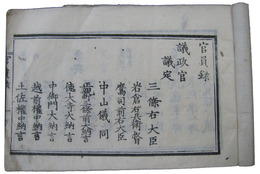 官員録
議政官
議定
三條右大臣
岩倉右兵衛督
鷹司前右大臣
中山儀同
正親町三條前大納言
德大寺大納言
中御門大納言
越前權中納言
土佐權中納言